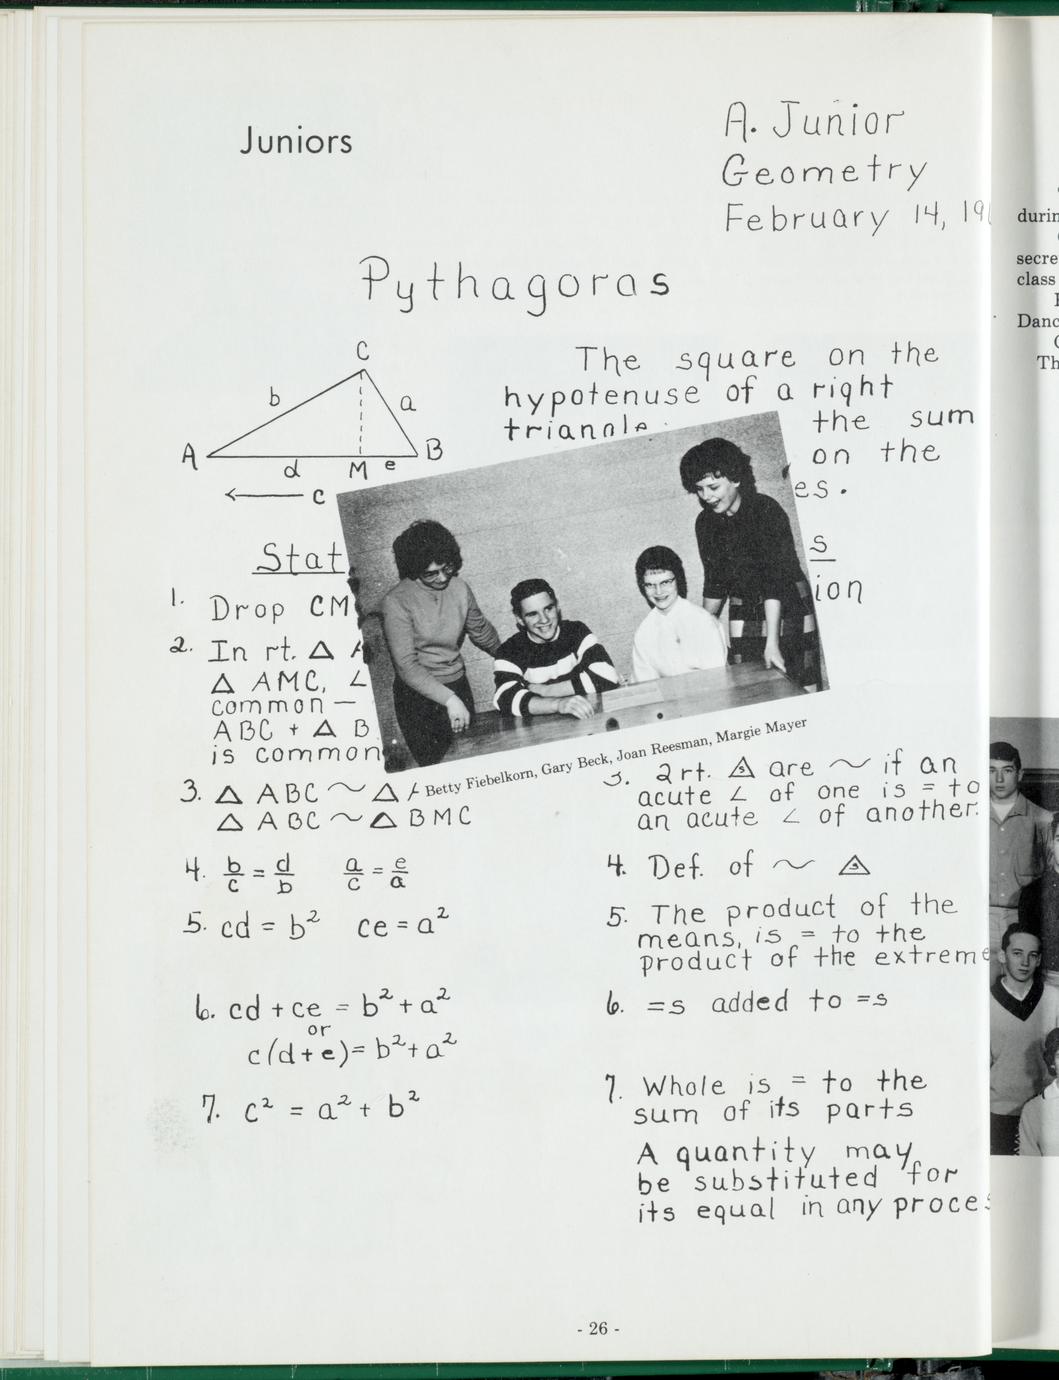 Juniors
A. Junior
Geometry
February 14, 19
Pythagoras
C
b
a
A
B
d
M
e
c
The square on the
hypotenuse of a right
the sum
on the
es.
Stat
s
1. Drop CM
ion
2. In rt. △
△ AMC, ∠
common —
ABC + △ B
is common
Betty Fiebelkorn, Gary Beck, Joan Reesman, Margie Mayer
3. △ ABC ~ △
△ ABC ~ △ BMC
3. 2 rt. △s are ~ if an
acute ∠ of one is = to
an acute ∠ of another.
4. b/c = d/b a/c = e/a
4. Def. of ~ △s
5. cd = b² ce = a²
5. The product of the
means, is = to the
product of the extreme
6. cd + ce = b² + a²
or
c(d+e) = b² + a²
6. =s added to =s
7. c² = a² + b²
7. Whole is = to the
sum of its parts
A quantity may
be substituted for
its equal in any proces
- 26 -
durin
secre
class
Danc
Th